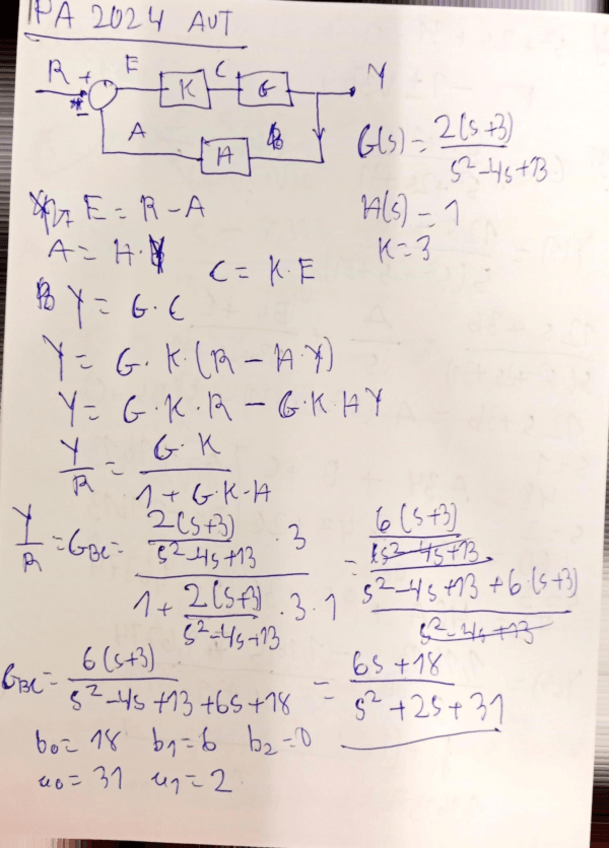 PA 2024 AUT
R + E K C G Y
-
A H B
G(s) = 2(s+3) / s²-4s+13
H(s) = 1
K = 3
E = R - A
A = H·Y
C = K·E
Y = G·C
Y = G·K·(R - H·Y)
Y = G·K·R - G·K·HY
Y/R = G·K / 1 + G·K·H
Y/R = G_BC = (2(s+3) / s²-4s+13 · 3) / (1 + 2(s+3) / s²-4s+13 · 3·1) = (6(s+3) / s²-4s+13) / (s²-4s+13 + 6·(s+3) / s²-4s+13)
G_BC = 6(s+3) / s²-4s+13+6s+18 = 6s+18 / s²+2s+31
b₀= 18 b₁=6 b₂=0
a₀= 31 a₁=2